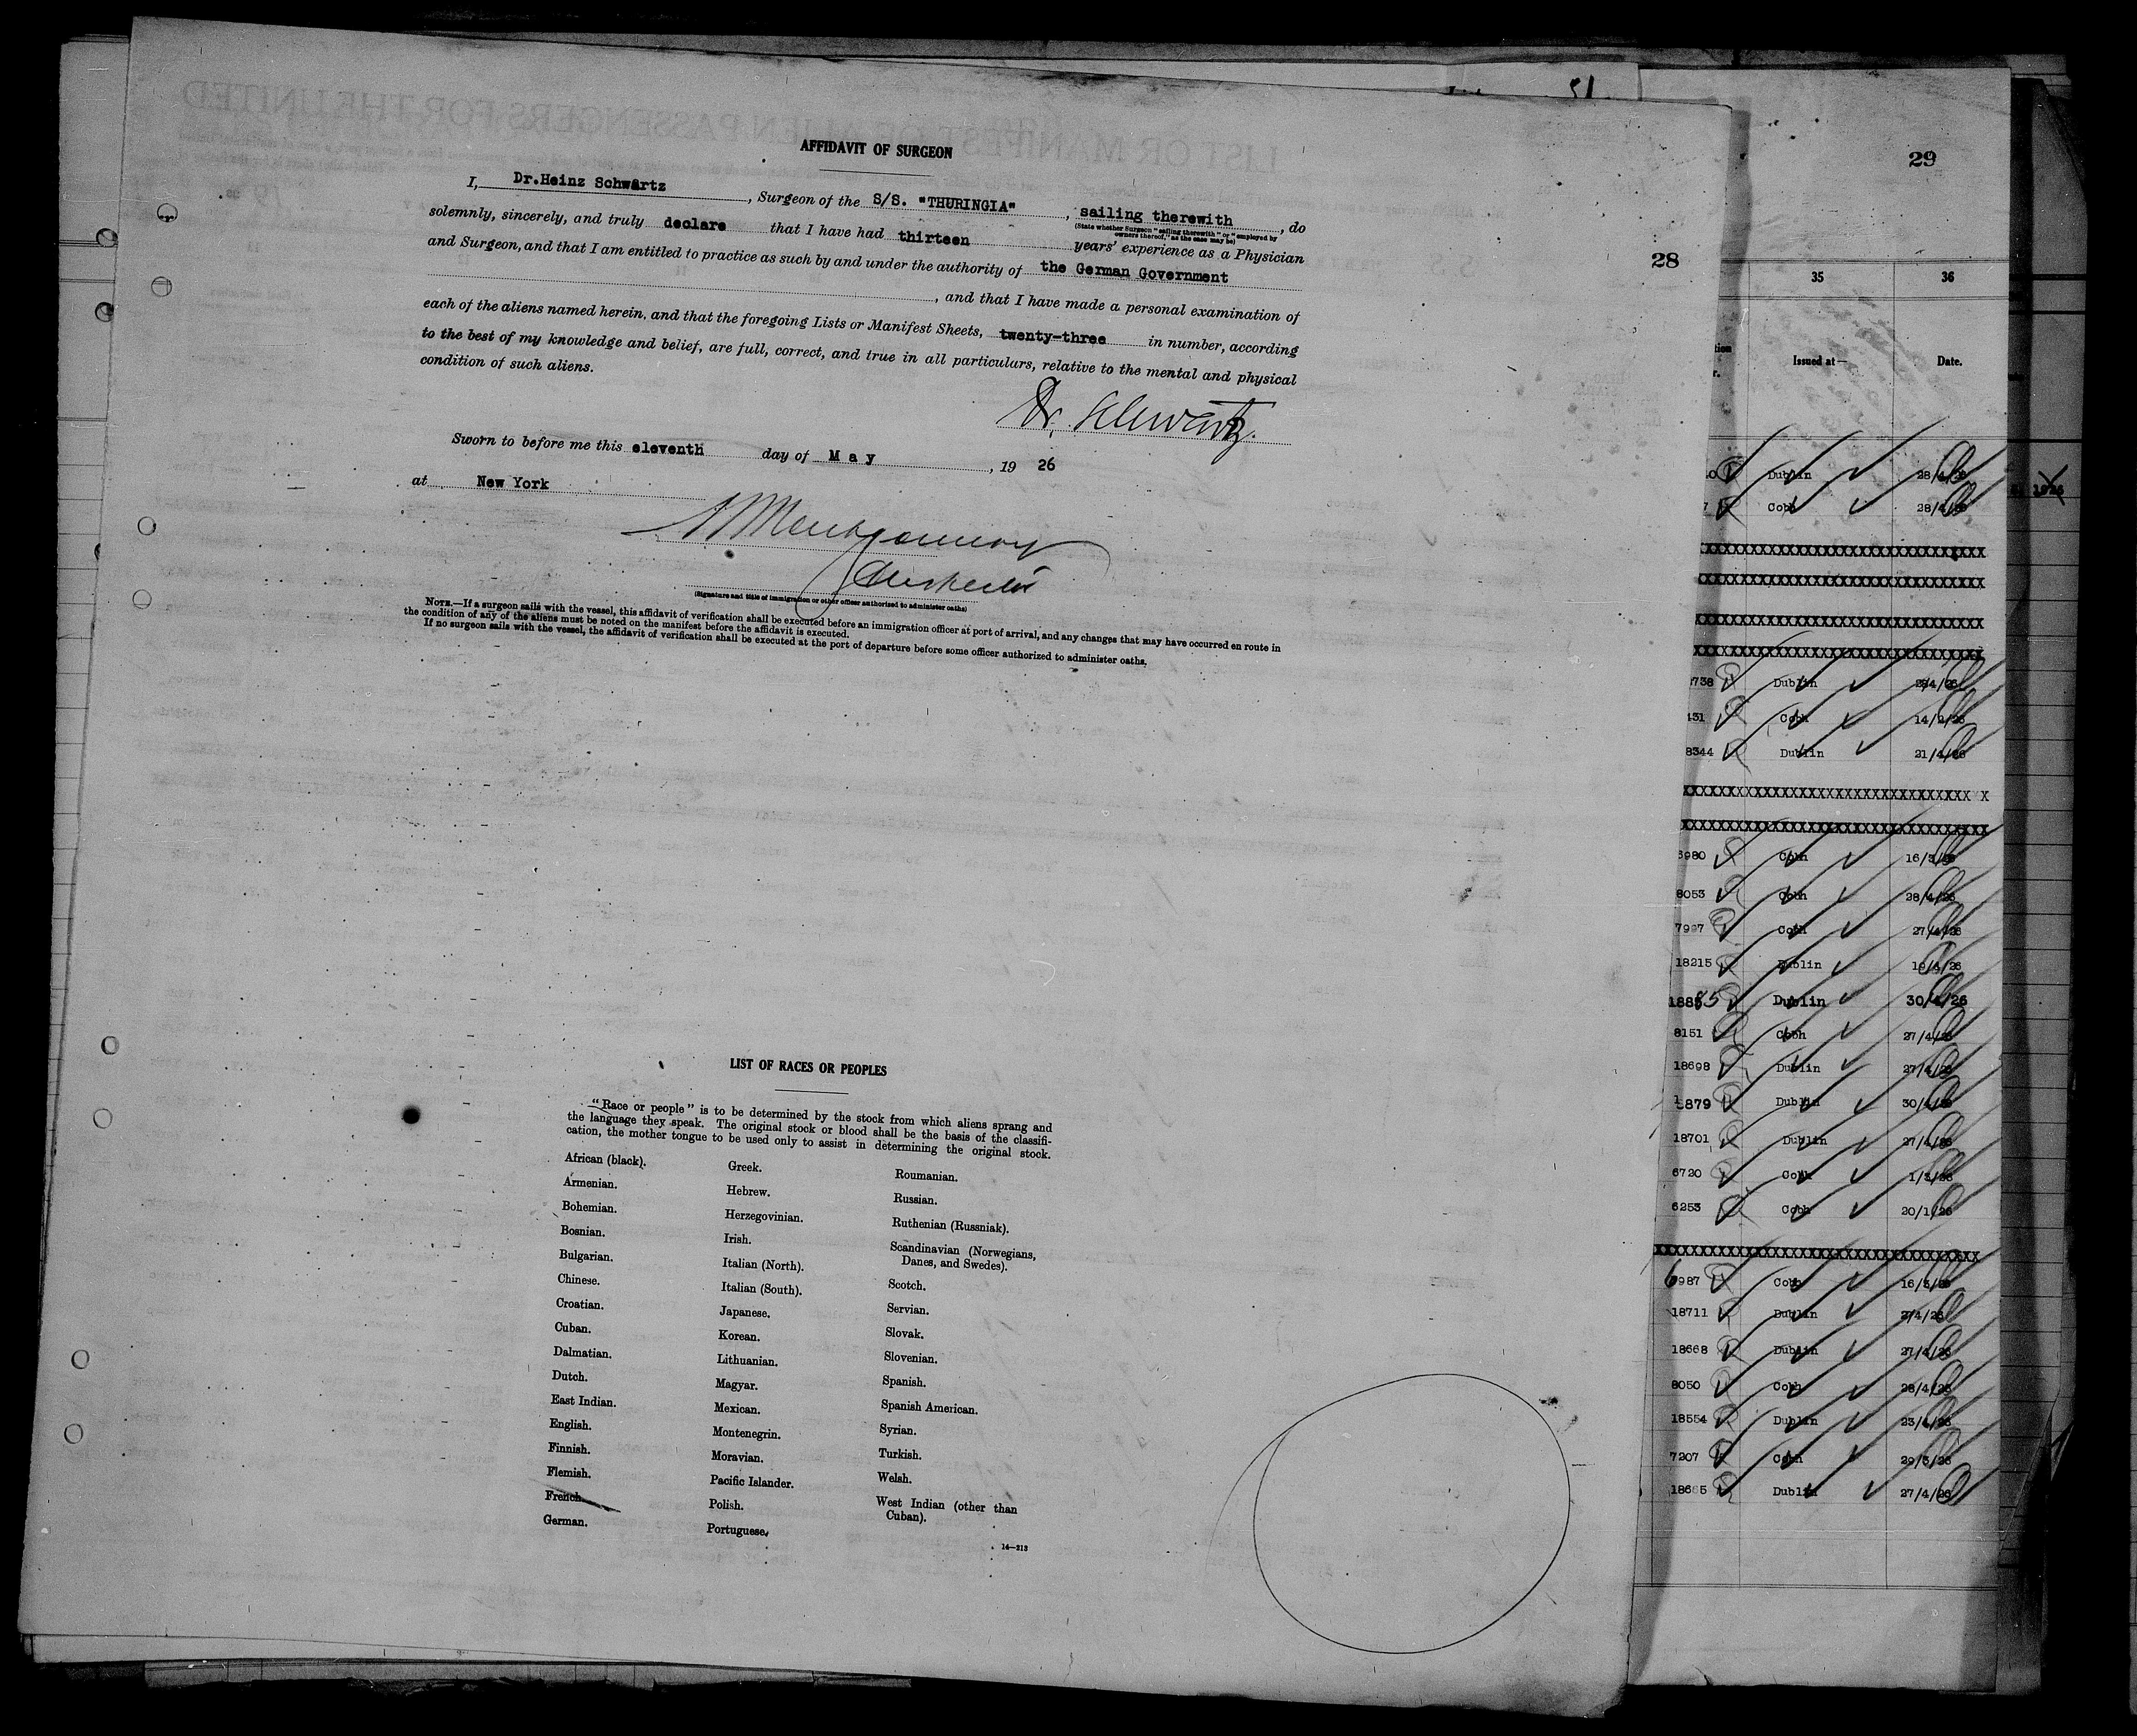 AFFIDAVIT OF SURGEON
I, Dr.Heinz Schwartz, Surgeon of the S/S. "THURINGIA", sailing therewith, do
(State whether Surgeon "sailing therewith" or "employed by
owners thereof," as the case may be)
solemnly, sincerely, and truly declare that I have had thirteen years' experience as a Physician
and Surgeon, and that I am entitled to practice as such by and under the authority of the German Government
, and that I have made a personal examination of
each of the aliens named herein, and that the foregoing Lists or Manifest Sheets, twenty-three in number, according
to the best of my knowledge and belief, are full, correct, and true in all particulars, relative to the mental and physical
condition of such aliens.
Dr. Schwartz.
Sworn to before me this eleventh day of May, 19 26
at New York
Montgomery
(Signature and title of immigration or other officer authorized to administer oaths)
NOTE.—If a surgeon sails with the vessel, this affidavit of verification shall be executed before an immigration officer at port of arrival, and any changes that may have occurred en route in
the condition of any of the aliens must be noted on the manifest before the affidavit is executed.
If no surgeon sails with the vessel, the affidavit of verification shall be executed at the port of departure before some officer authorized to administer oaths.
LIST OF RACES OR PEOPLES
"Race or people" is to be determined by the stock from which aliens sprang and
the language they speak. The original stock or blood shall be the basis of the classifi-
cation, the mother tongue to be used only to assist in determining the original stock.
African (black).
Armenian.
Bohemian.
Bosnian.
Bulgarian.
Chinese.
Croatian.
Cuban.
Dalmatian.
Dutch.
East Indian.
English.
Finnish.
Flemish.
French.
German.
Greek.
Hebrew.
Herzegovinian.
Irish.
Italian (North).
Italian (South).
Japanese.
Korean.
Lithuanian.
Magyar.
Mexican.
Montenegrin.
Moravian.
Pacific Islander.
Polish.
Portuguese.
Roumanian.
Russian.
Ruthenian (Russniak).
Scandinavian (Norwegians,
Danes, and Swedes).
Scotch.
Servian.
Slovak.
Slovenian.
Spanish.
Spanish American.
Syrian.
Turkish.
Welsh.
West Indian (other than
Cuban).
14—313
29
28
35 36
Issued at— Date.
Dublin 28/4/26
Cobh 28/4/26
XXXXXXXXXXXXXXXXXXXXXXXXXXXXXXXX
XXXXXXXXXXXXXXXXXXXXXXXXXXXXXXXX
XXXXXXXXXXXXXXXXXXXXXXXXXXXXXXXX
XXXXXXXXXXXXXXXXXXXXXXXXXXXXXXXX
738 Dublin
431 Cobh 14/2/26
8344 Dublin 21/4/26
XXXXXXXXXXXXXXXXXXXXXXXXXXXXXXXX
XXXXXXXXXXXXXXXXXXXXXXXXXXXXXXXX
6980 Cobh 16/3/26
8053 Cobh 28/4/26
7997 Cobh 27/4/26
18215 Dublin 19/4/26
18885 Dublin 30/4/26
8151 Cobh 27/4/26
18698 Dublin 27/4/26
1879 Dublin 30/4/26
18701 Dublin 27/4/26
6720 Cobh 1/3/26
6253 Cobh 20/1/26
XXXXXXXXXXXXXXXXXXXXXXXXXXXXXXXX
6987 Cobh 16/3/26
18711 Dublin
18668 Dublin 27/4/26
8050 Cobh 28/4/26
18554 Dublin 23/4/26
7207 Cobh 29/3/26
18665 Dublin 27/4/26